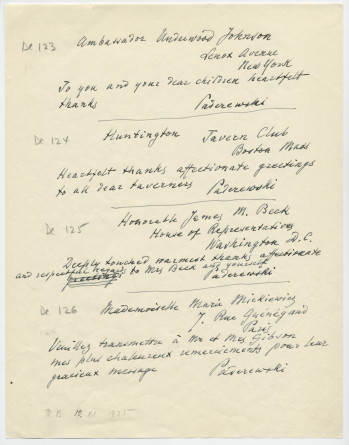 De 123 Ambassador Underwood Johnson
Lenox Avenue
New York
To you and your dear children heartfelt
thanks Paderewski
De 124 Huntington Tavern Club
Boston Mass
Heartfelt thanks affectionate greetings
to all dear taverners Paderewski
De 125 Honorable James M. Beck
House of Representatives
Washington D.C.
Deeply touched warmest thanks affectionate
and respectful to Mrs Beck and yourself
Paderewski
De 126 Mademoiselle Marie Mickiewicz
7, Rue Guénégaud
Paris
Veuillez transmettre à Mr et Mrs Gibson
mes plus chaleureux remerciements pour leur
gracieux message Paderewski